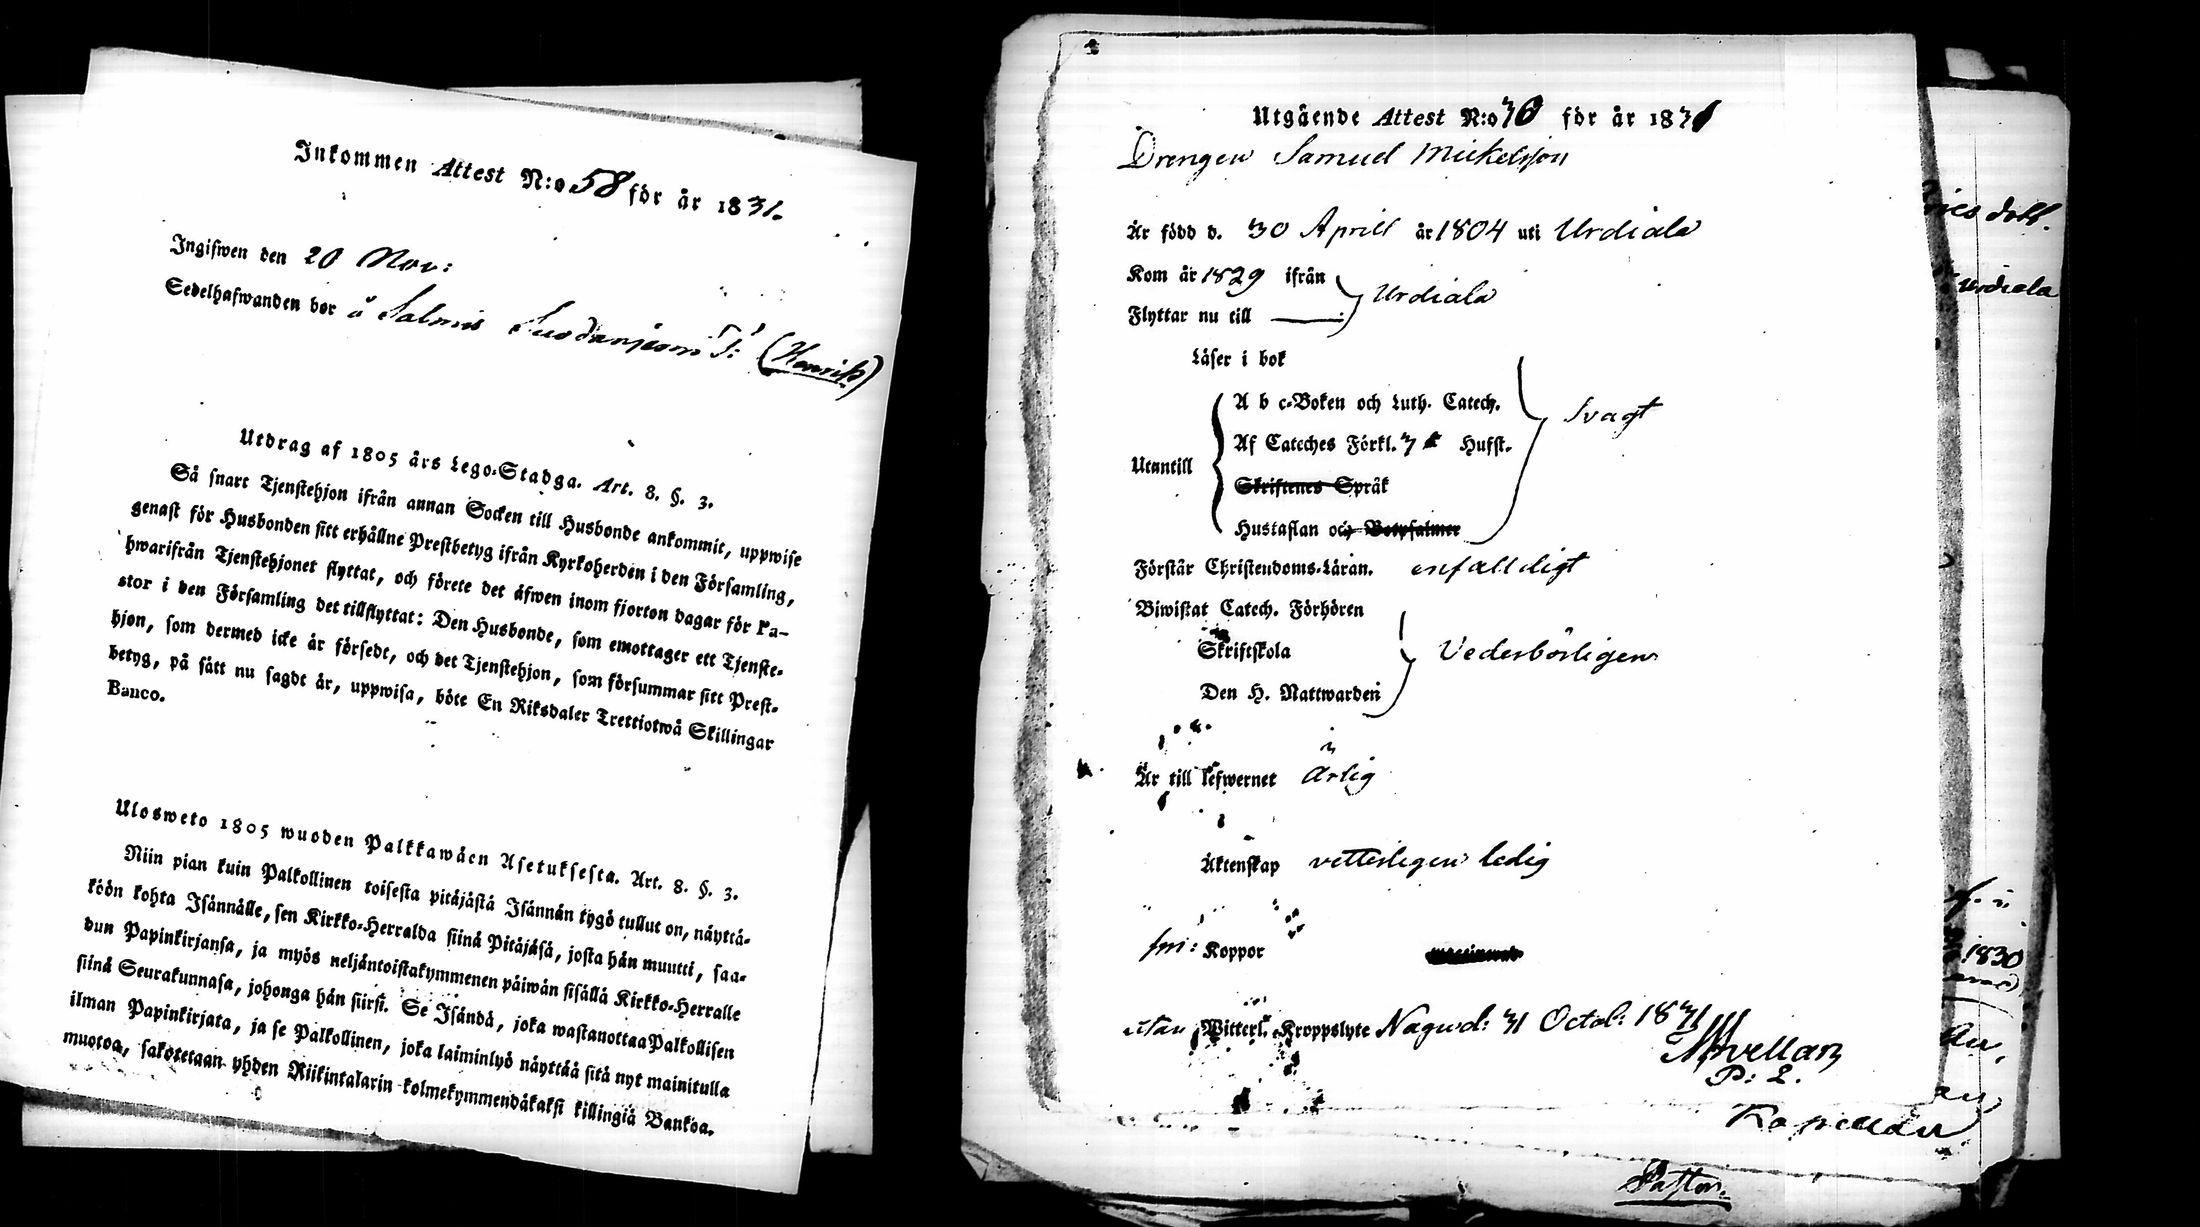 Inkommen Attest N:o 58 för år 1831.
Ingifwen den 20 Nov:
Sedelhafwanden bor å Salmis (Henrik)
Utdrag af 1805 års Lego-Stadga. Art. 8. §. 3.
Så snart Tjenstehjon ifrån annan Socken till Husbonde ankommit, uppwise
genast för Husbonden sitt erhållne Prestbetyg ifrån Kyrkoherden i den Församling,
hwarifrån Tjenstehjonet flyttat, och förete det äfwen inom fjorton dagar för Pa-
stor i den Församling det tillflyttat: Den Husbonde, som emottager ett Tjenste-
hjon, som dermed icke är försedt, och det Tjenstehjon, som försummar sitt Prest-
betyg, på sått nu sagdt är, uppwisa, böte En Riksdaler Trettiotwå Skillingar
Banco.
Ulosweto 1805 wuoden Palkkawäen Asetuksesta. Art. 8. §. 3.
Niin pian kuin Palkollinen toisesta pitäjästä Isännän tygö tullut on, näyttä-
köön kohta Isännälle, sen Kirkko-Herralda siinä Pitäjäsä, josta hän muutti, saa-
dun Papinkirjansa, ja myös neljäntoistakymmenen päiwän sisällä Kirkko-Herralle
siinä Seurakunnasa, johonga hän siirsi. Se Isändä, joka wastanottaa Palkollisen
ilman Papinkirjata, ja se Palkollinen, joka laiminlyö näyttää sitä nyt mainitulla
muotoa, sakotetaan yhden Riikintalarin kolmekymmendäkaksi killingiä Bankoa.
Utgående Attest N:o 76 för år 1831
Drengen Samuel Mickelsson
Är född d. 30 Aprill år 1804 uti Urdiala
Kom år 1829 ifrån
Flyttar nu till Urdiala
Läser i bok
A b c-Boken och Luth. Catech.
Af Cateches Förkl. 3 Hufst. Svagt
Utantill
Skriftenes Språk
Hustaflan och Botpsalmer
Förstår Christendoms-Läran. enfalldigt
Biwistat Catech. Förhören
Skriftskola Vederbörligen
Den H. Nattwarden
Är till lefwernet ärlig
Äktenskap vetterligen ledig
Koppor
utan Witterl. Kroppslyte Nagu d: 31 Octob: 1831
P: L.
Kapellan
Pastor.
dott.
Urdiala
1830